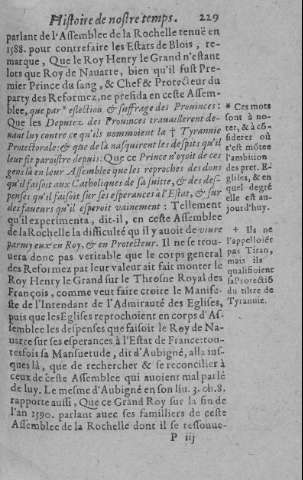 Histoire de nostre temps. 229
parlant de l'Assemblee de la Rochelle tenuë en
1588. pour contrefaire les Estats de Blois, re-
marque, Que le Roy Henry le Grand n'estant
lors que Roy de Nauarre, bien qu'il fust Pre-
mier Prince du sang, & Chef & Protecteur du
party des Reformez, ne presida en ceste Assem-
blee, que par * eslection & suffrage des Prouinces:
Que les Deputez des Prouinces trauaillerent de-
nant luy contre ce qu'ils nommoient la † Tyrannie
Protectorale: & que de là nasquirent les despits qu'il
leur fit paroistre depuis: Que ce Prince n'oyoit de ces
gens là en leur Assemblee que les reproches des dons
qu'il faisoit aux Catholiques de sa suitte, & des des-
penses qu'il faisoit sur ses esperances à l'Estat, & sur
des faueurs qu'il esperoit vainement: Tellement
qu'il experimenta, dit-il, en ceste Assemblee
de la Rochelle la difficulté qu'il y auoit de viure
parmy eux en Roy, & en Protecteur. Il ne se trou-
uera donc pas veritable que le corps general
des Reformez par leur valeur ait faic monter le
Roy Henry le Grand sur le Throsne Royal des
François, comme veut faire croire le Manife-
ste de l'Intendant de l'Admirauté des Eglises,
puis que les Eglises reprochoient en corps d'As-
semblee les despenses que faisoit le Roy de Na-
uarre sur ses esperances à l'Estat de France: tou-
tesfois sa Mansuetude, dit d'Aubigné, alla ius-
ques là, que de rechercher & se reconcilier à
ceux de ceste Assemblee qui auoient mal parlé
de luy. Le mesme d'Aubigné en son liu. 3. ch. 8.
rapporte aussi, Que ce Grand Roy sur la fin de
l'an 1590. parlant auec ses familliers de ceste
Assemblee de la Rochelle dont il se ressouue-
P iij
* Ces mots
sont à no-
ter, & à cõ-
siderer où
c'est mõtee
l'ambition
des pret. R-
glises, & en
quel degré
elle est au-
jourd'huy.
† Ils ne
l'appelloiẽt
pas Tiran,
mais ils
qualifioient
sa Protectiõ
du tiltre de
Tyrannie.